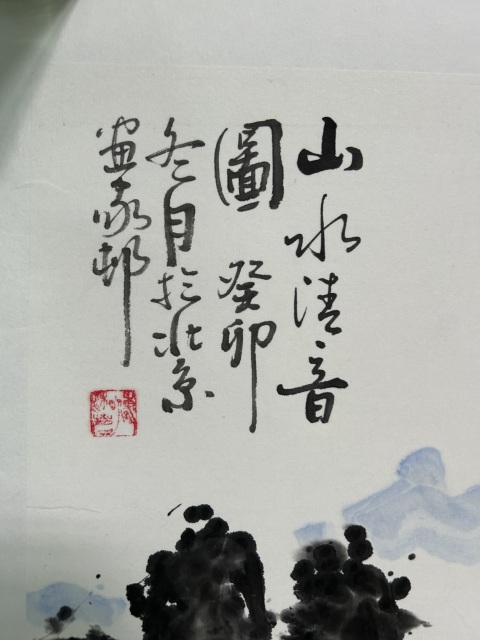 山水清音
圖 癸卯
冬月於北京
画家邨